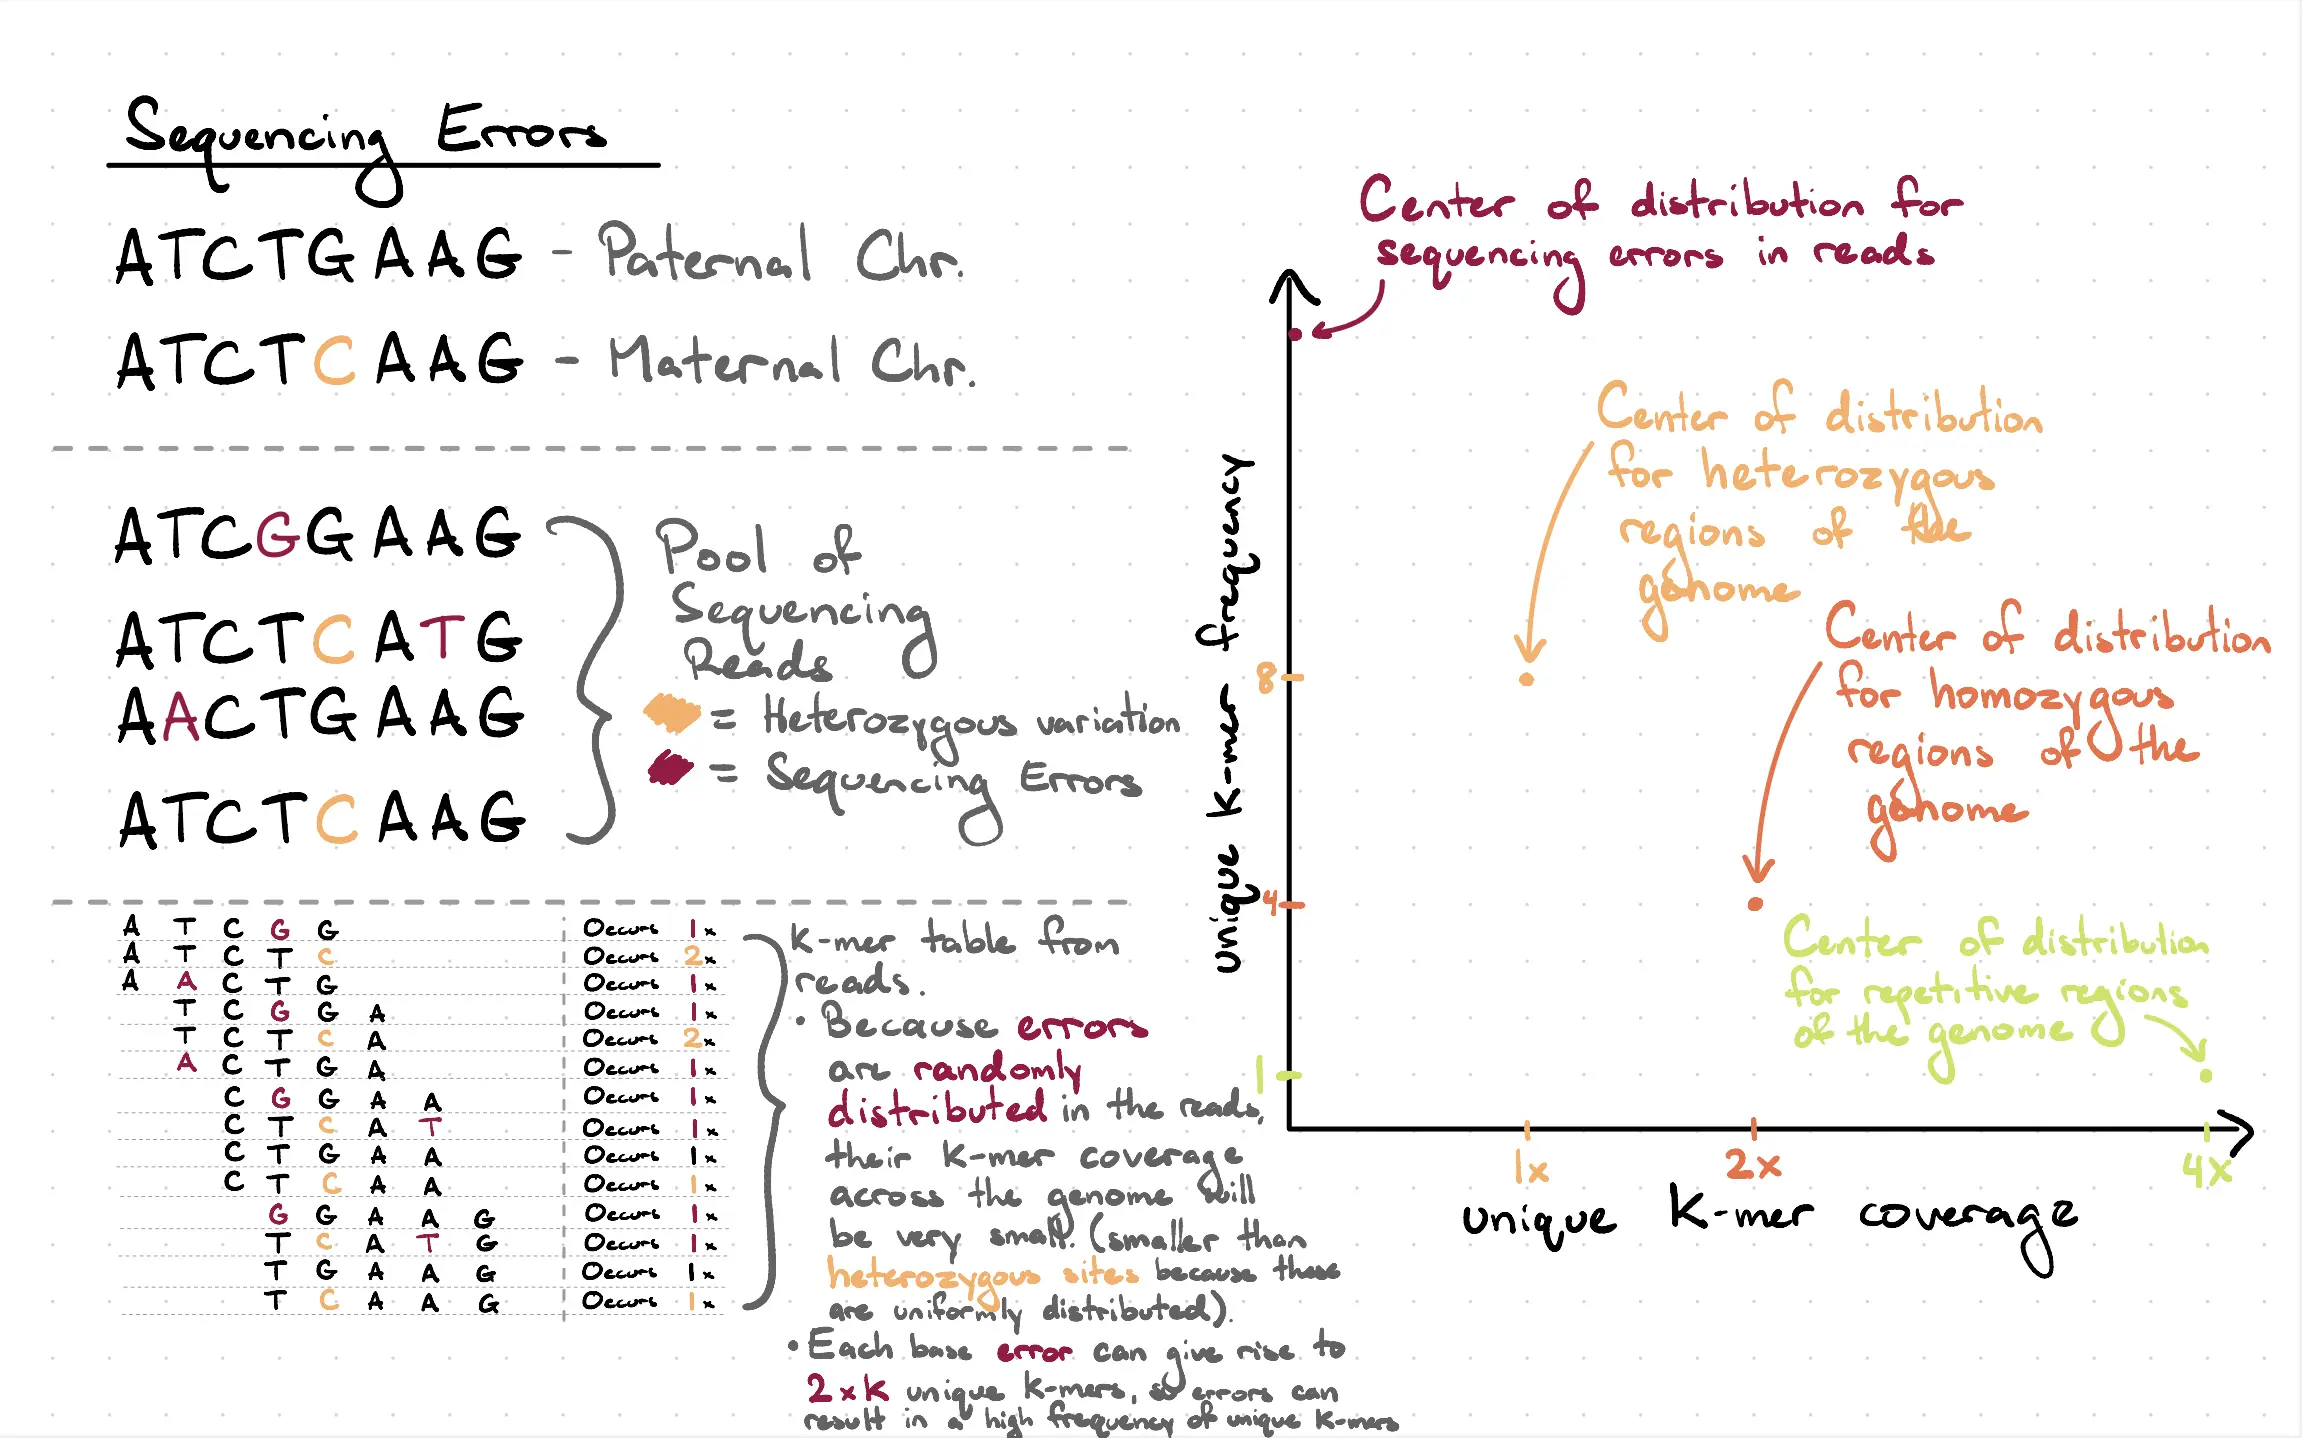 Sequencing Errors
ATCTGAAG - Paternal Chr.
ATCTCAAG - Maternal Chr.
ATCGGAAG
ATCTCATG
AACTGAAG
ATCTCAAG
Pool of
Sequencing
Reads
= Heterozygous variation
= Sequencing Errors
A T C G G Occurs 1x
A T C T C Occurs 2x
A A C T G Occurs 1x
T C G G A Occurs 1x
T C T C A Occurs 2x
A C T G A Occurs 1x
C G G A A Occurs 1x
C T C A T Occurs 1x
C T G A A Occurs 1x
C T C A A Occurs 1x
G G A A G Occurs 1x
T C A T G Occurs 1x
T G A A G Occurs 1x
T C A A G Occurs 1x
K-mer table from
reads.
• Because errors
are randomly
distributed in the reads,
their K-mer coverage
across the genome will
be very small. (smaller than
heterozygous sites because these
are uniformly distributed).
• Each base error can give rise to
2xK unique K-mers, so errors can
result in a high frequency of unique K-mers
Center of distribution for
sequencing errors in reads
Center of distribution
for heterozygous
regions of the
genome
Center of distribution
for homozygous
regions of the
genome
Center of distribution
for repetitive regions
of the genome
unique K-mer frequency
8
4
1
1x 2x 4x
unique K-mer coverage